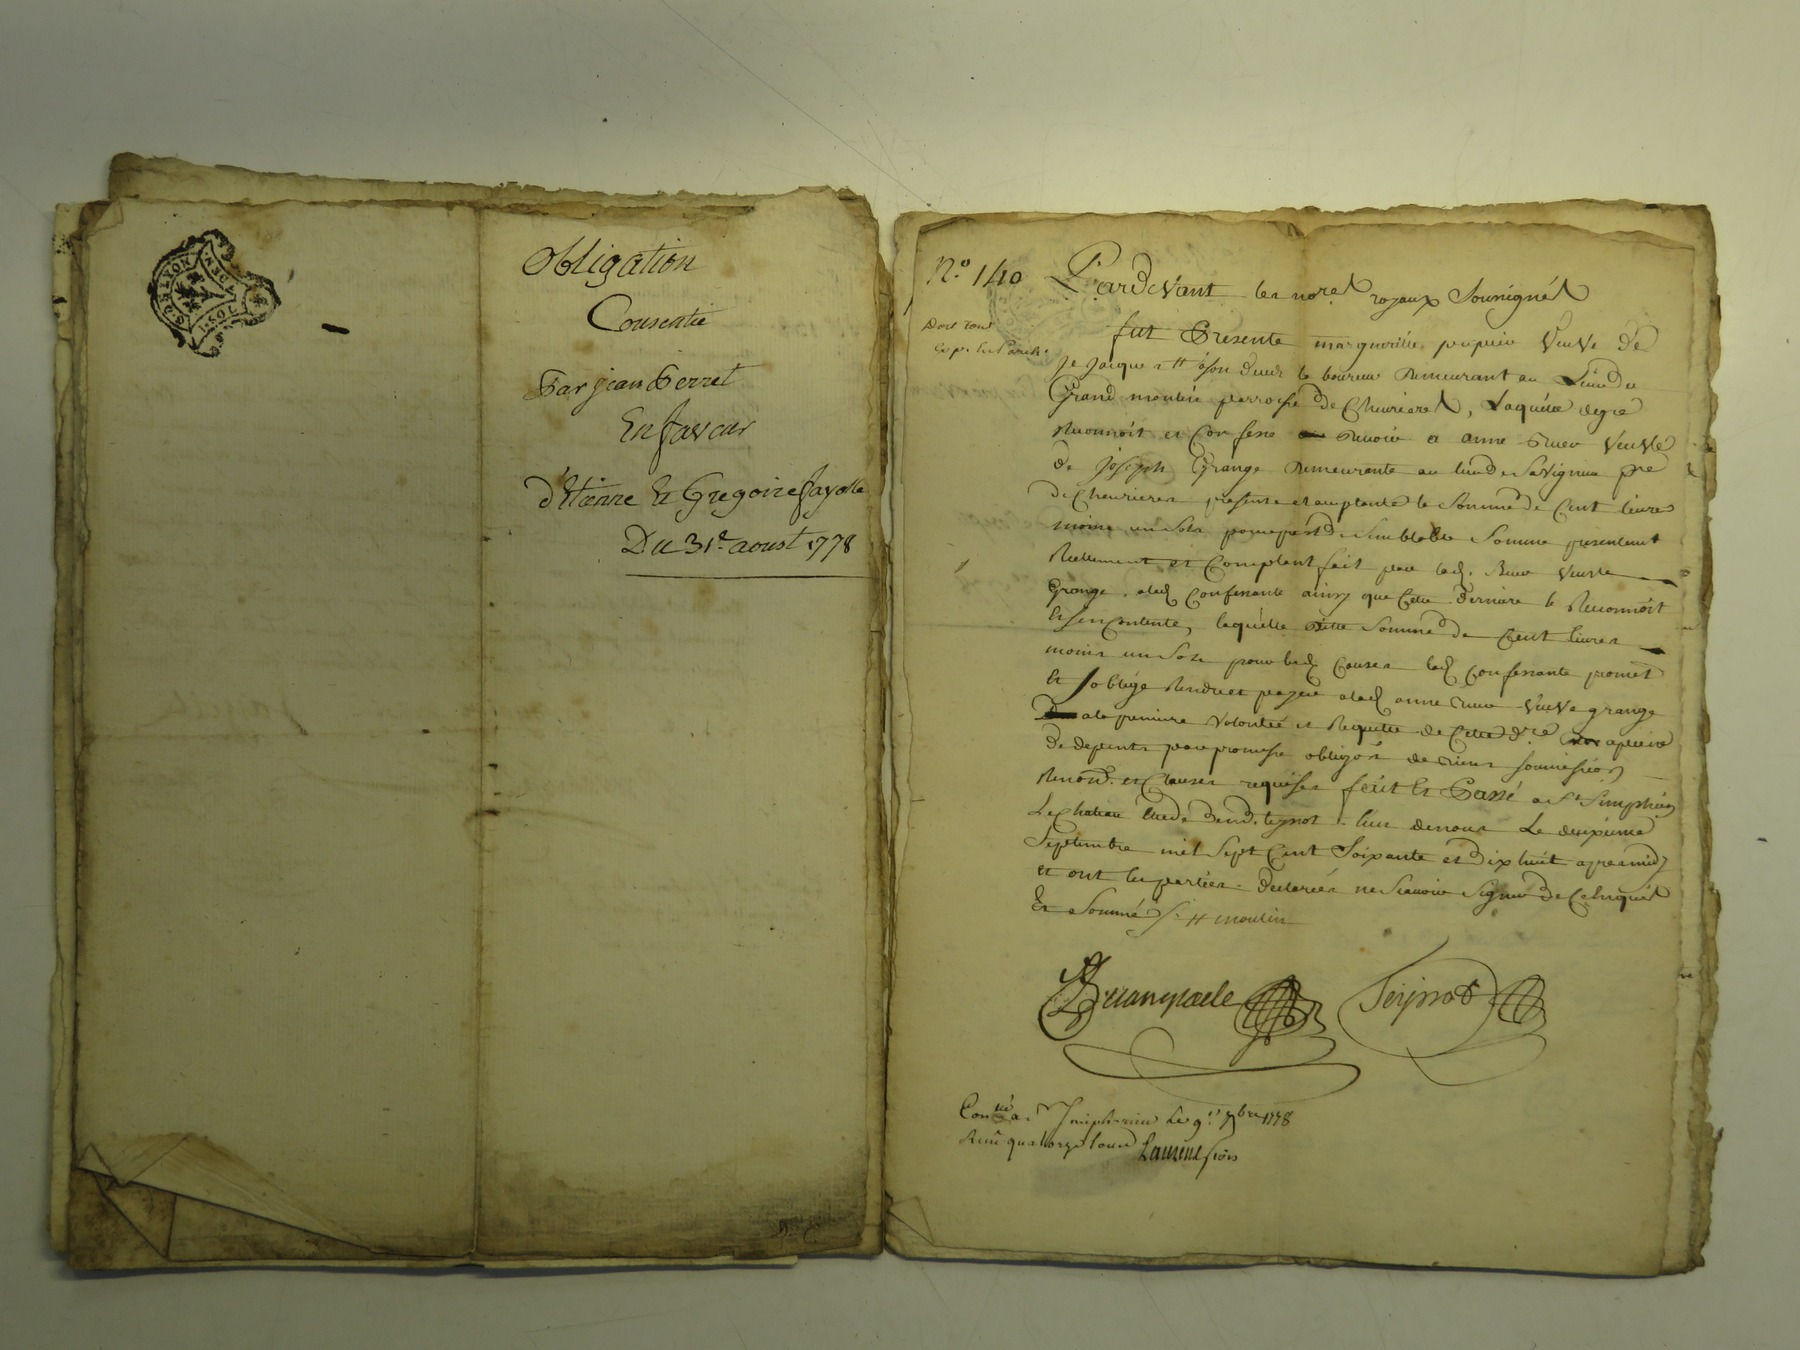 G. D. LYON
1. SOL
Obligation
Consentie
Par jean Ferret
En faveur
d'Etienne Et Gregoire fayolle
Du 31e. aoust 1778
N.o 140
Pardevant les nores royaux Sousignés
fut Presente margueritte veuve de
demeurant au Lieu du
Grand moulin parroisse de Chevrieres, Laquelle degré
Reconnoit et Confesse devoir a anne veuve
de joseph Grange demeurante au lieu de Savignieu pse
de Chevrieres presente et acceptante la Somme de Cent livres
moins un Sols pour pret de Semblable Somme presentement
Reellement et Comptant fait par lad. veuve
Grange alad. Confessante ainsy que Cette derniere le Reconnoit
Et sen Contente, laquelle ditte Somme de Cent livres
moins un Sols pour lesd. Causes lad. Confessante promet
Et soblige Rendre et payer alad. anne veuve grange
ala premiere volonté et Requette de Cette dre a peine
de depents par promesse obligon de biens soumission
Renon. et Clauses requises fait Et Passé a St. Simphorien
Le Chateau Etude dud. teynot lun denous Le deuxieme
Septembre mil Sept Cent Soixante et dix huit apres midy
et ont les parties declarées ne Scavoir Signer de Ce Enquis
Et Sommé
Teynot
Conlé a St. Simphorien Le 9e. 7bre 1778
Recu quatorze sous